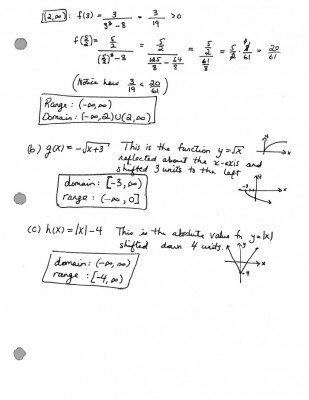 (2,∞): f(3) = 3/(3³-8) = 3/19 > 0
f(5/2) = (5/2)/((5/2)³-8) = (5/2)/(125/8 - 64/8) = (5/2)/(61/8) = 5/2 · 8/61 = 20/61
(Notice how 3/19 < 20/61)
Range: (-∞,∞)
Domain: (-∞,2)∪(2,∞)
(b) g(x) = -√x+3 This is the function y=√x
reflected about the x-axis and
shifted 3 units to the left
domain: [-3,∞)
range: (-∞,0]
(c) h(x) = |x|-4 This is the absolute value fn y=|x|
shifted down 4 units.
domain: (-∞,∞)
range: [-4,∞)